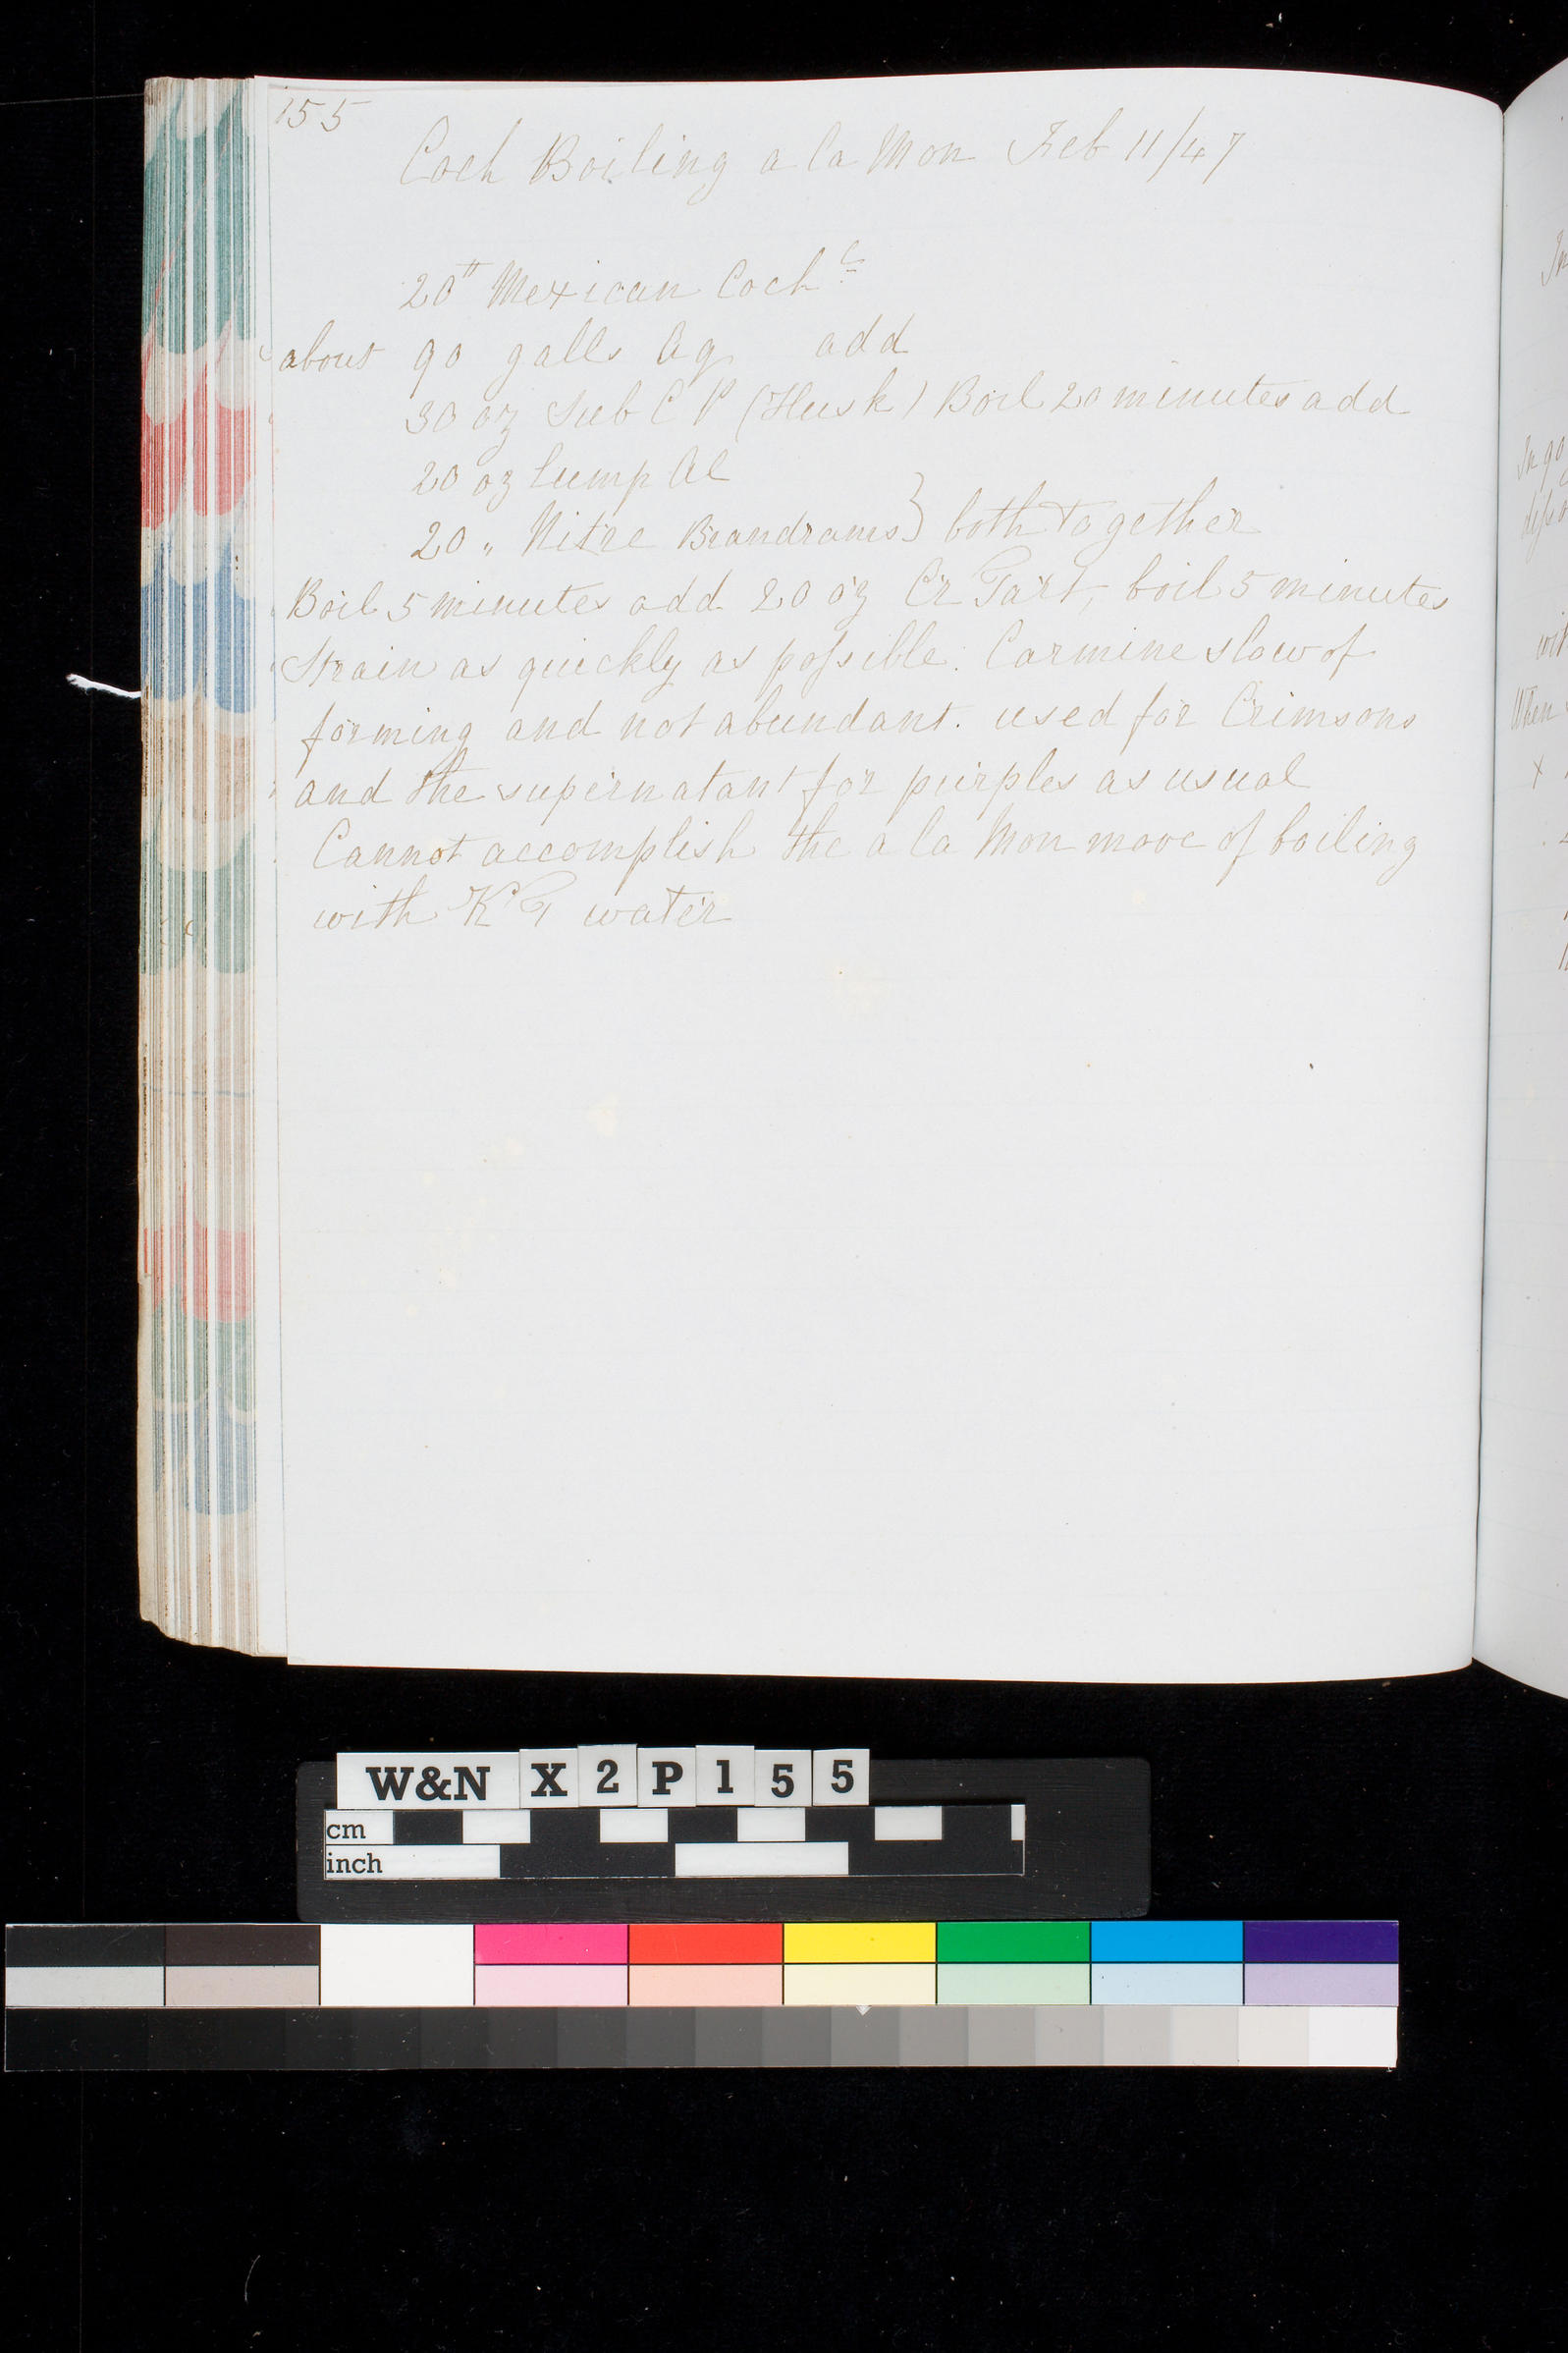 155
Coch Boiling a la Mon Feb 11/47
20 lb Mexican Coch c
about 90 galls Aq add
30 oz Sub C P (Husk) Boil 20 minutes add
20 oz lump Al
20 " Nitre Brandrams } both together
Boil 5 minutes add 20 oz Cr Tart, boil 5 minutes
Strain as quickly as possible. Carmine slow of
forming and not abundant. used for Crimsons
and the supernatant for purples as usual
Cannot accomplish the a la Mon move of boiling
with K T water
In
In 90
disso
wit
When
x
W&N X2P155
cm
inch